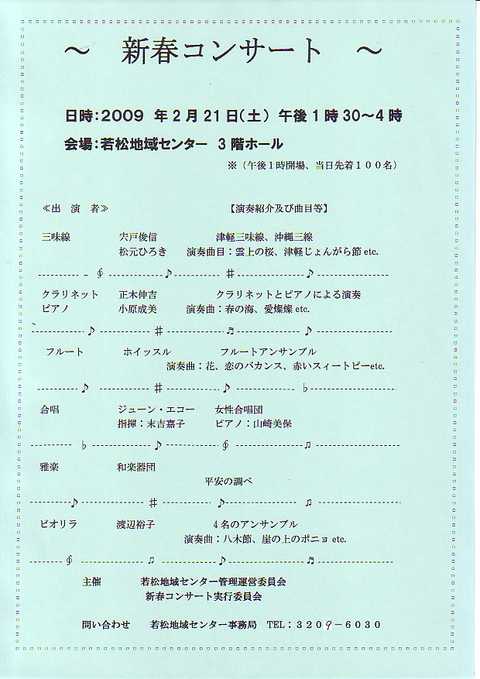 ～ 新春コンサート ～
日時：２００９ 年２月２１日（土） 午後１時３０～４時
会場：若松地域センター ３階ホール
※（午後１時開場、当日先着１００名）
≪出 演 者≫ 【演奏紹介及び曲目等】
三味線 宍戸俊信 津軽三味線、沖縄三線
松元ひろき 演奏曲目：雲上の桜、津軽じょんがら節 etc.
クラリネット 正木伸吉 クラリネットとピアノによる演奏
ピアノ 小原成美 演奏曲：春の海、愛燦燦 etc.
フルート ホイッスル フルートアンサンブル
演奏曲：花、恋のバカンス、赤いスィートピーetc.
合唱 ジューン・エコー 女性合唱団
指揮：末吉嘉子 ピアノ：山崎美保
雅楽 和楽器団
平安の調べ
ビオリラ 渡辺裕子 ４名のアンサンブル
演奏曲：八木節、崖の上のポニョ etc.
主催 若松地域センター管理運営委員会
新春コンサート実行委員会
問い合わせ 若松地域センター事務局 TEL：３２０９－６０３０